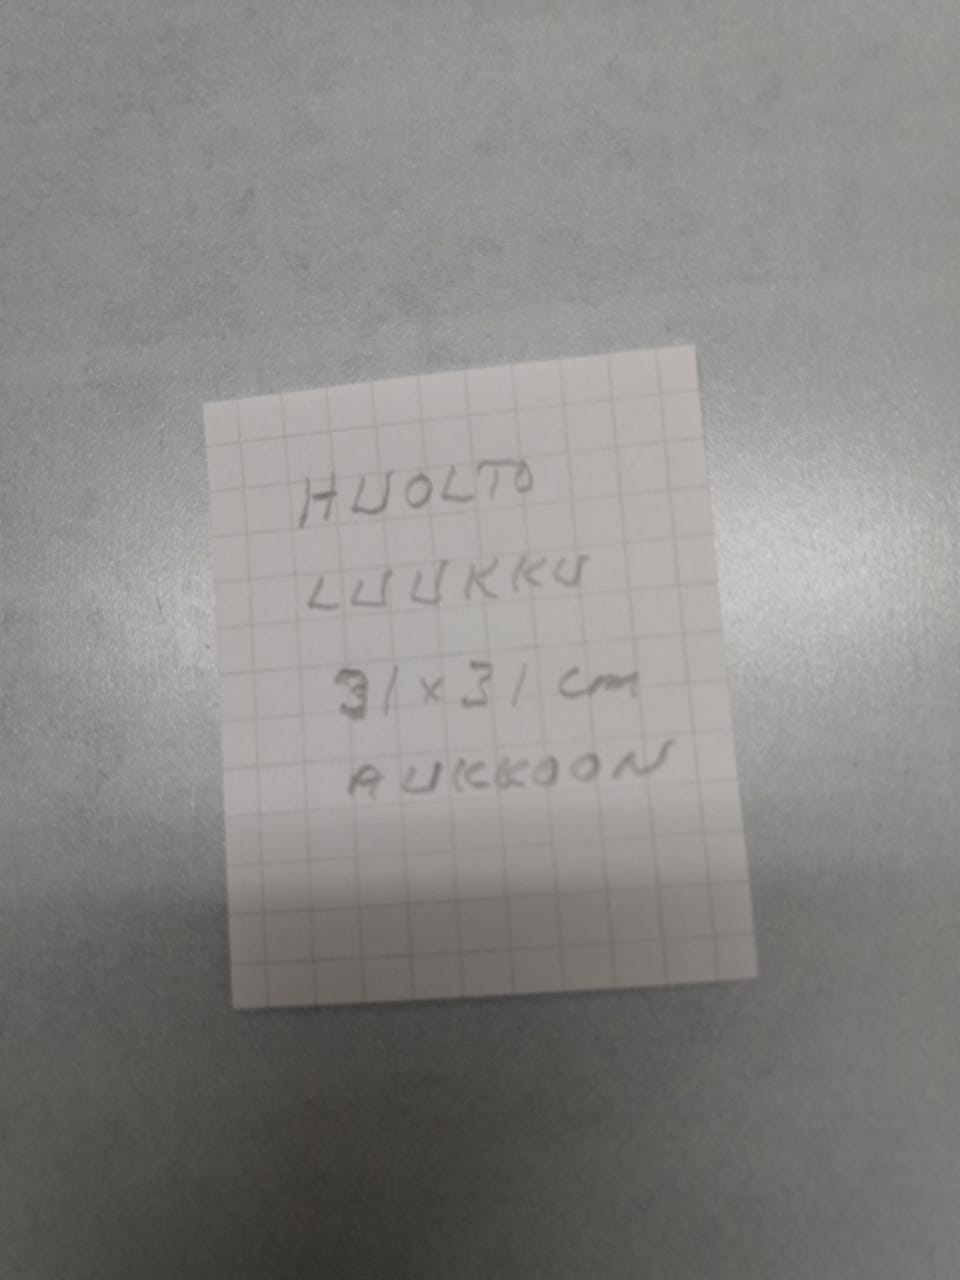 HUOLTO
LUUKKU
31x31 cm
AUKKOON